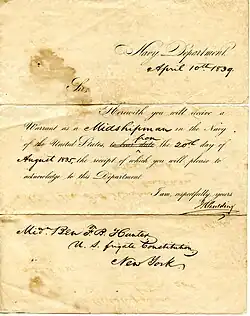 Navy Department,
April 10th 1839.
Sir:
Herewith you will receive a
Warrant as a Midshipman in the Navy
from
of the United States, to bear date the 20th day of
August 1835, the receipt of which you will please to
acknowledge to this Department.
I am, respectfully yours
JKPaulding
Mid. Ben F. B. Hunter
U. S. frigate Constitution
New York